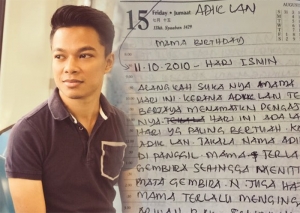 15 Friday • Jumaat ADIK LAN
MAMA BIRTHDAY
11.10.2010 - HARI ISNIN
ALANGKAH SUKA NYA MAMA
HARI INI KERANA ADIK LAN TE
BERJAYA MENAMATKAN PENGA
NYA HARI INI ADALA
HARI YG PALING BERTUAH
ADIK LAN. TAKALA NAMA ADI
DI PANGGIL MAMA TERLA
GEMBIRA SEHINGGA MENIT
MATA GEMBIRA. N JUGA HA
MAMA TERLALU MENGIN